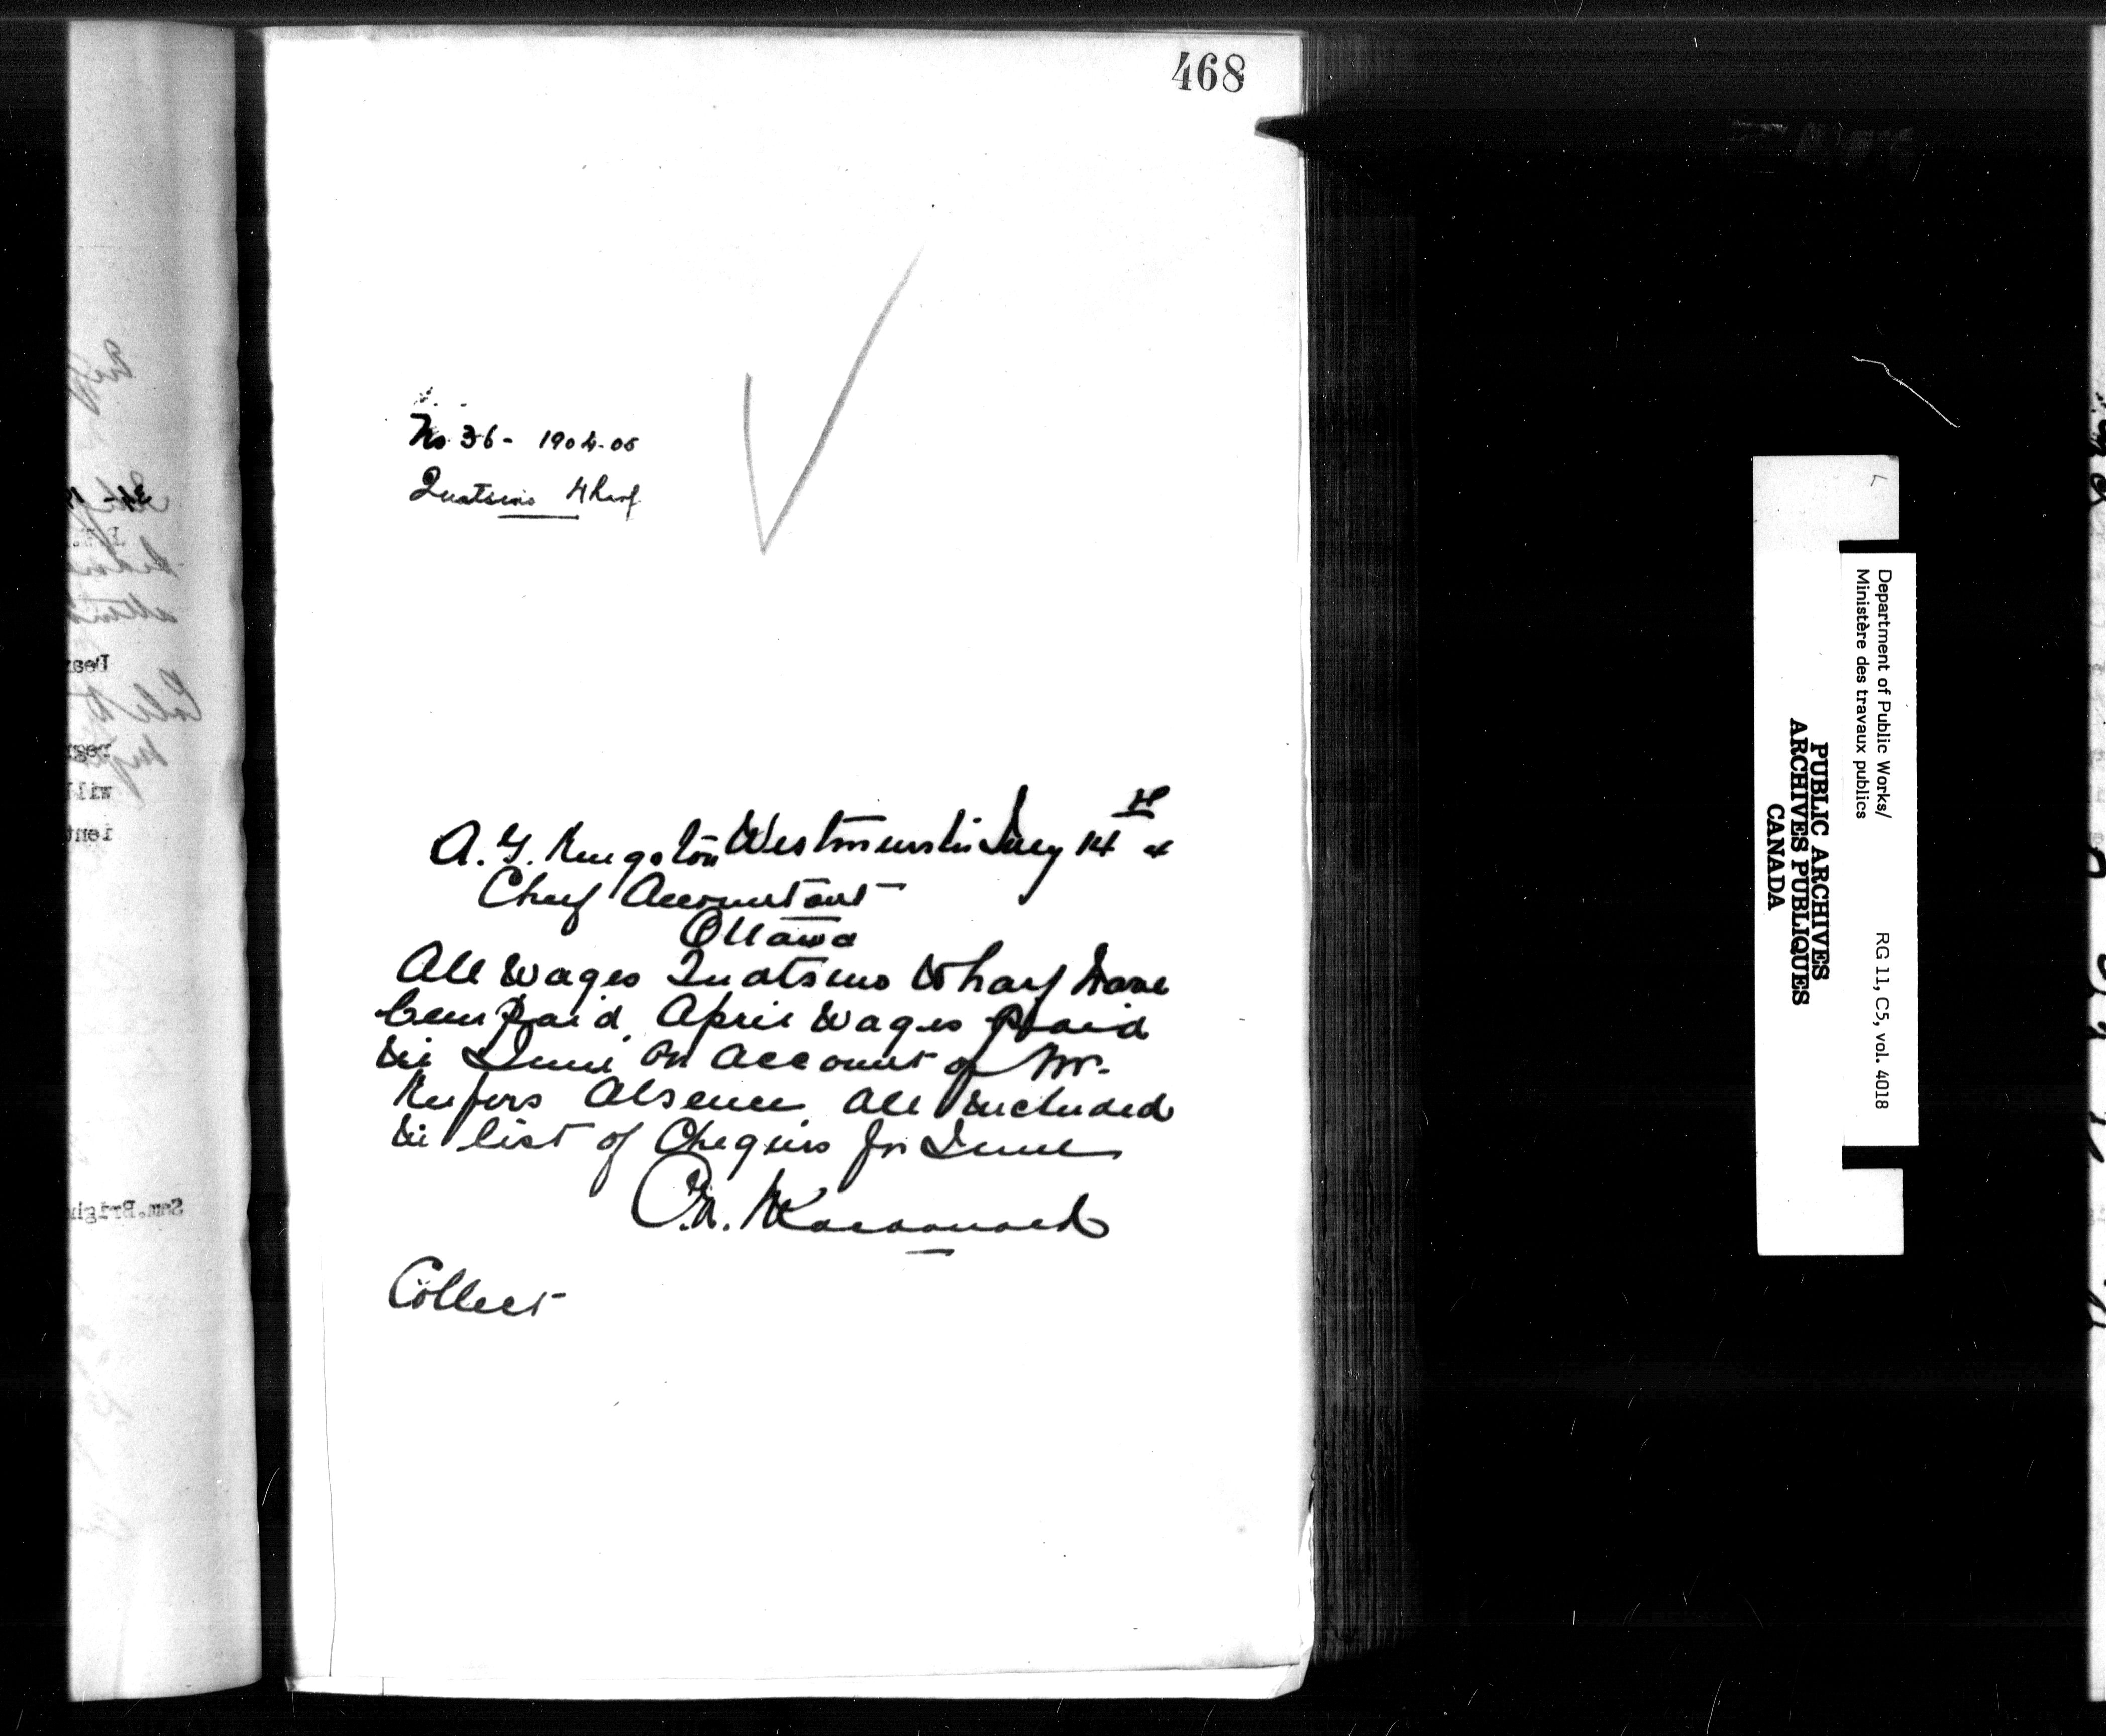 468
No 36 - 1904-05
Quatsino Wharf
A. G. Kingston Westminster July 14th 4
Chief Accountant
Ottawa
All wages Quatsino Wharf have
been paid April wages paid
in June on account of Mr.
absence all included
in list of Cheques for June
Collect
Department of Public Works/
Ministère des travaux publics
RG 11, C5, vol. 4018
PUBLIC ARCHIVES
ARCHIVES PUBLIQUES
CANADA